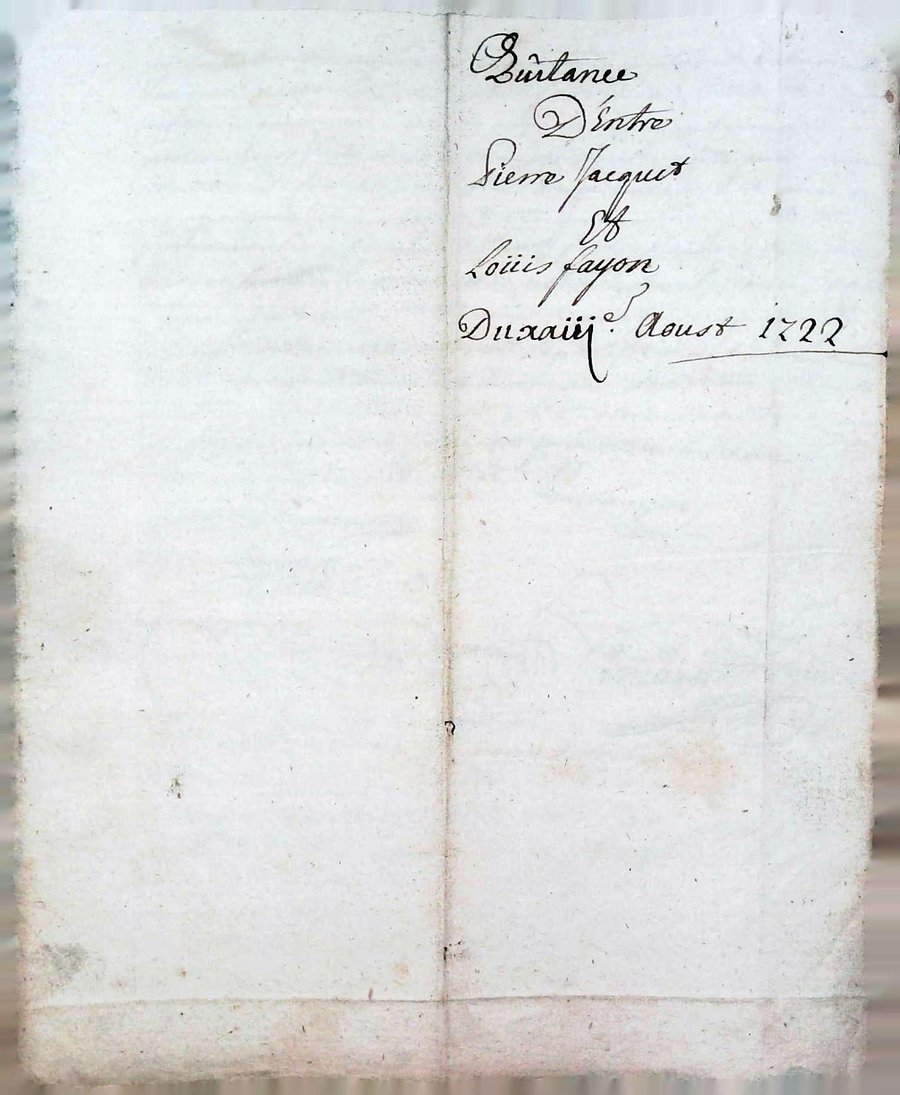 Quîtance
D'Entre
Pierre Jacquet
Et
Loüis fayon
Du xxiiij.e Aoust 1722